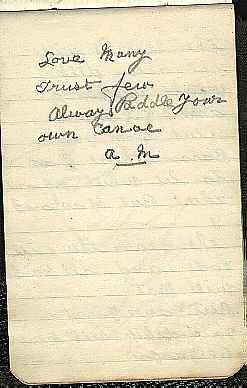 Love Many
Trust few
Always Paddle Your
own Canoe
A. M